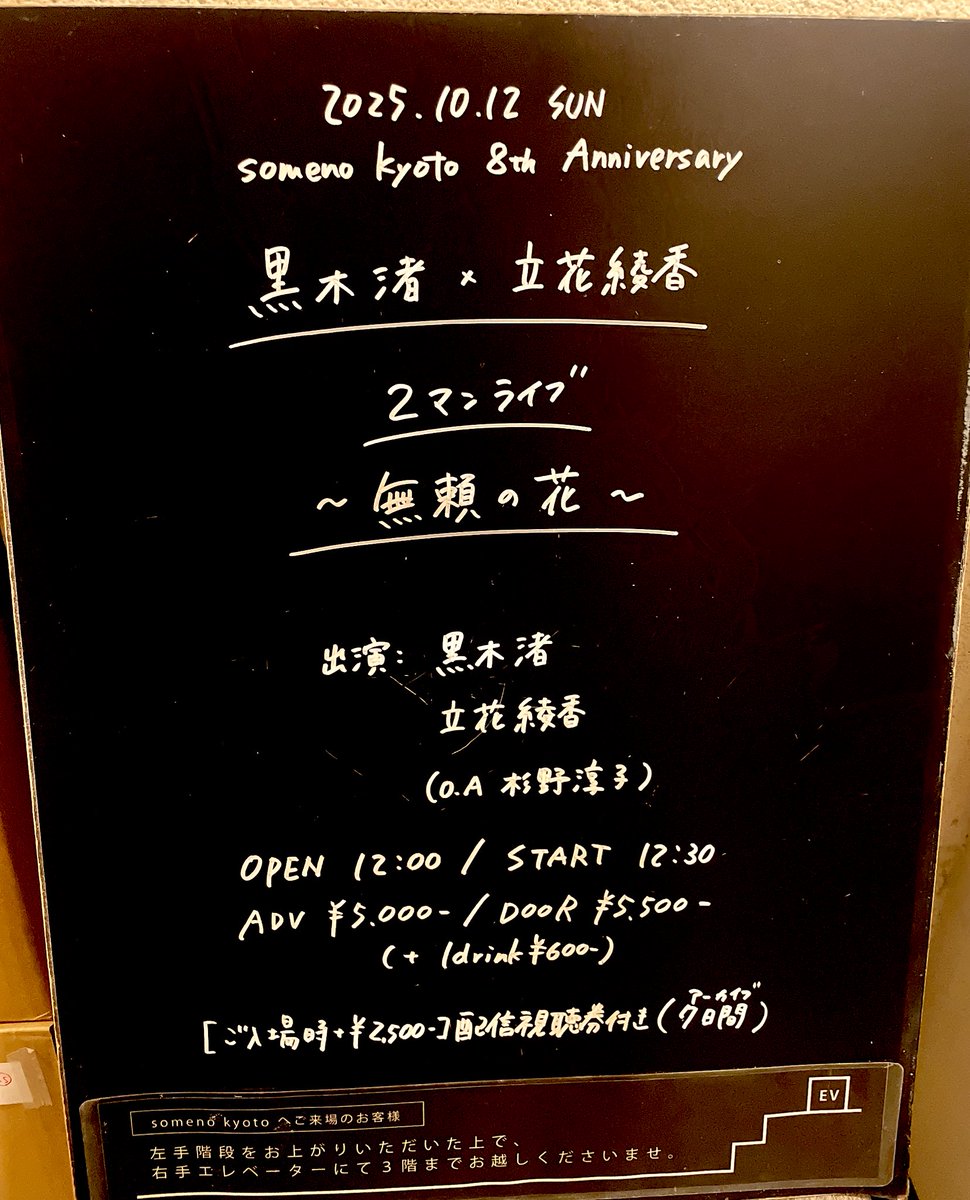 2025.10.12 SUN
someno kyoto 8th Anniversary
黒木渚 × 立花綾香
2マンライブ
～無頼の花～
出演: 黒木渚
立花綾香
(O.A 杉野淳子)
OPEN 12:00 / START 12:30
ADV ¥5.000- / DOOR ¥5.500-
(+ 1drink ¥600-)
アーカイブ
[ご入場時+¥2,500-]配信視聴券付き(7日間)
EV
someno kyoto へご来場のお客様
左手階段をお上がりいただいた上で、
右手エレベーターにて3階までお越しくださいませ。